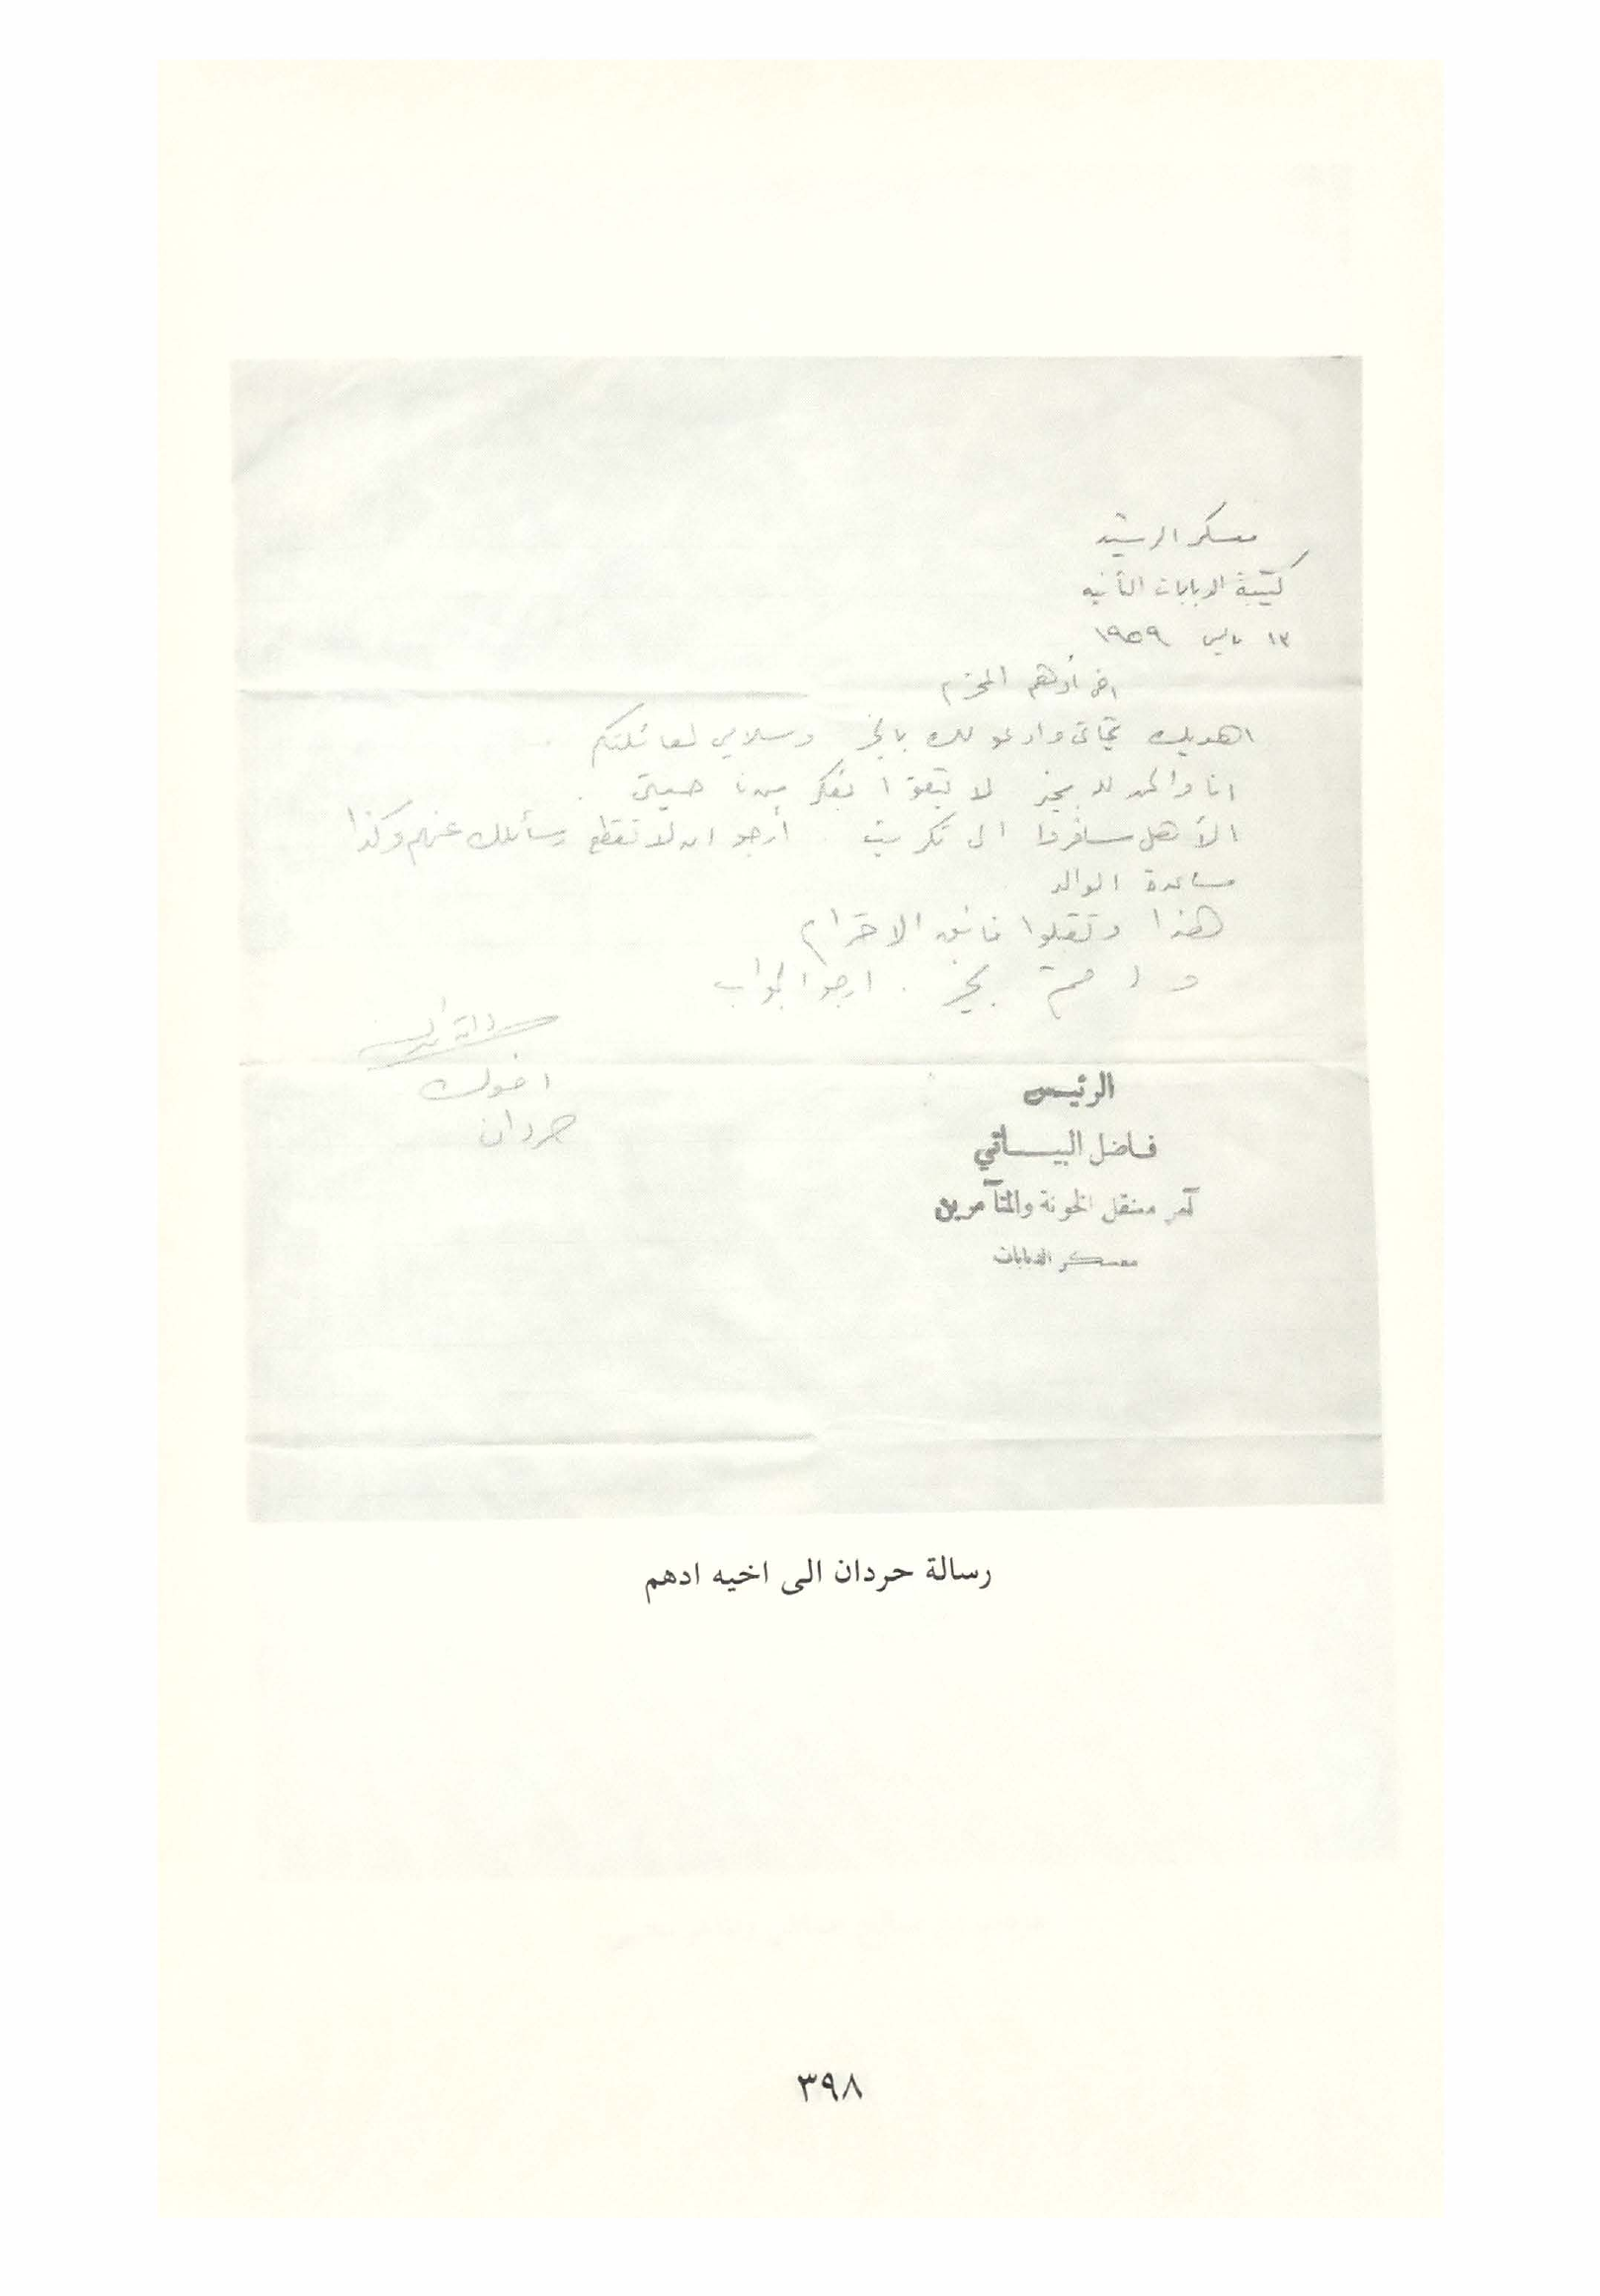 معسكر الرشيد
كتيبة الدبابات الثانيه
١٣ مايس ١٩٥٩
اخي أدهم المحترم
اهديك تحياتي وادعو لك بالخير وسلامي لعائلتكم
انا والحمد لله بخير لا تبقوا بفكر من ناحيتي .
الأهل سافروا الى تكريت . أرجو ان لا تقطع رسائلك عنهم وكذا
مساعدة الوالد
هذا وتقبلوا فائق الاحترام
ودمتم بخير . ارجو الجواب
اخوك
حردان
الرئيس
فاضل البياتي
آمر معتقل الخونة والمتآمرين
معسكر الدبابات
رسالة حردان الى اخيه ادهم
٣٩٨